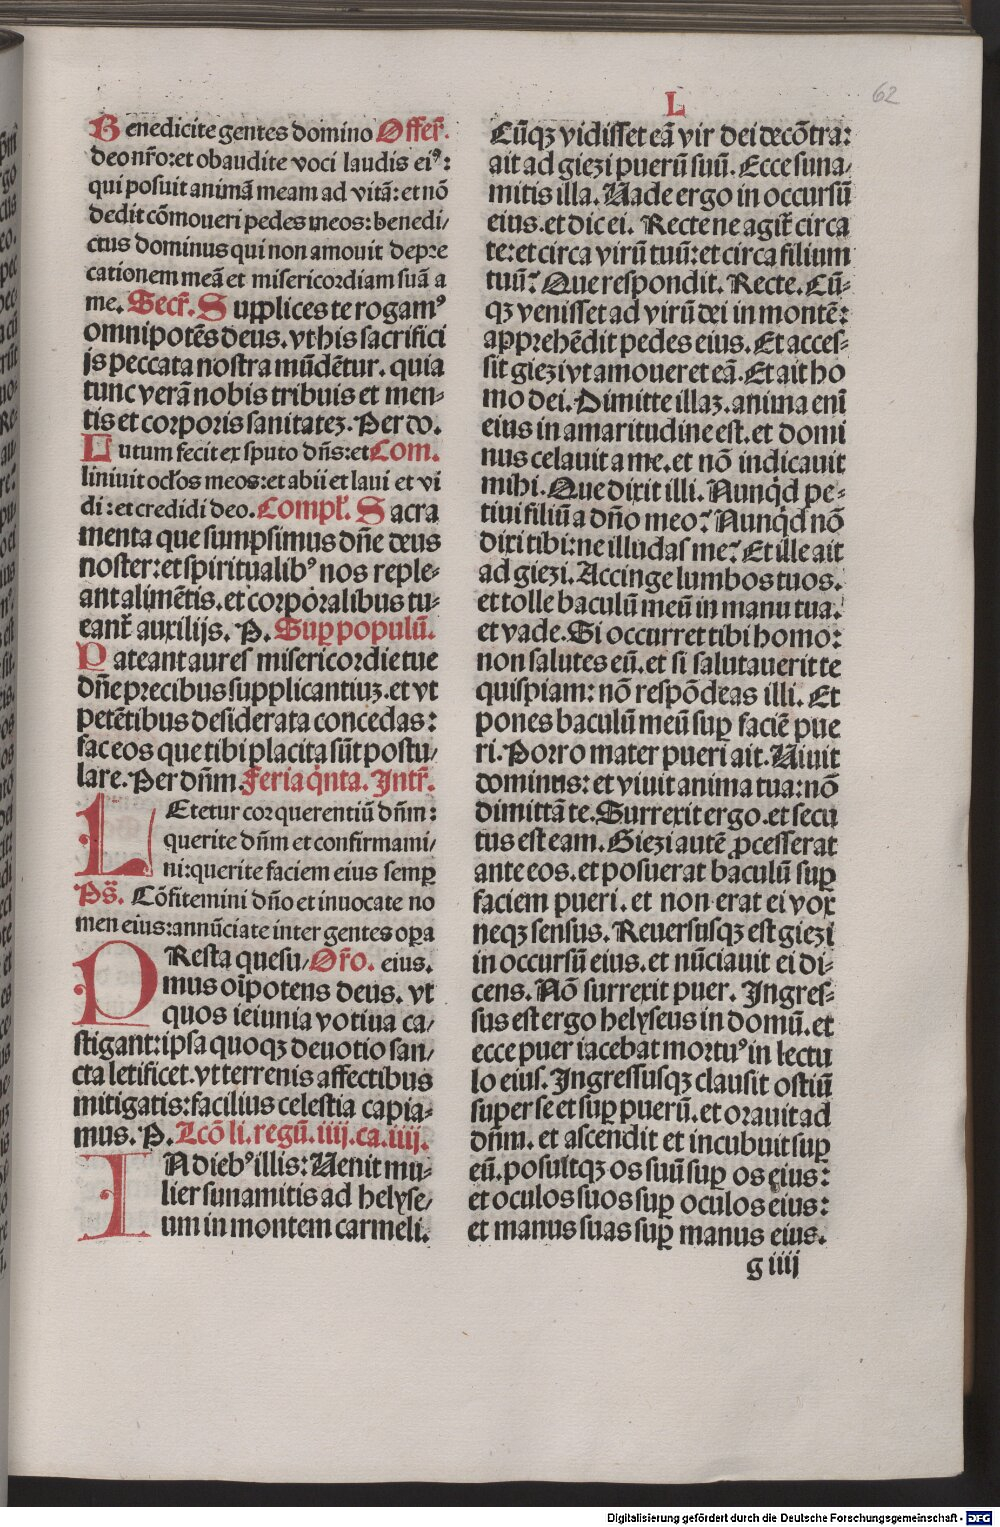 L
62
Benedicite gentes domino Offer̄.
deo nr̄o: et obaudite voci laudis eiꝰ:
qui posuit animā meam ad vitā: et nō
dedit cōmoueri pedes meos: benedi/
ctus dominus qui non amouit depre
cationem meā et misericordiam suā a
me. Secr̄. Supplices te rogamꝰ
omnipotēs deus. vt his sacrifici
js peccata nostra mūdētur. quia
tunc verā nobis tribuis et men-
tis et corporis sanitatez. Per do.
Lutum fecit ex sputo dn̄s: et Com.
liniuit oc̄los meos: et abii et laui et vi
di: et credidi deo. Compl̄. Sacra
menta que sumpsimus dn̄e deus
noster: et spiritualibꝰ nos reple-
ant alimētis. et corporalibus tu-
eant̄ auxilijs. P. Suꝑ populū.
Pateant aures misericordie tue
dn̄e precibus supplicantiuz. et vt
petētibus desiderata concedas:
fac eos que tibi placita sūt postu/
lare. Per dn̄m. Feria q̇nta. Intr̄.
LEtetur cor querentiū dn̄m:
querite dn̄m et confirmami/
ni: querite faciem eius semꝑ
Ps̄. Cōfitemini dn̄o et inuocate no
men eius: annūciate inter gentes oꝑa
PResta quesu/ Or̄o. eius.
mus oīpotens deus. vt
quos ieiunia votiua ca/
stigant: ipsa quoqꝫ deuotio san/
cta letificet. vt terrenis affectibus
mitigatis: facilius celestia capia-
mus. P. Lcō li. regū. iiij. ca. iiij.
IN diebꝰ illis: Uenit mu-
lier sunamitis ad helyse/
um in montem carmeli.
Cūqꝫ vidisset eā vir dei decōtra:
ait ad giezi puerū suū. Ecce suna/
mitis illa. Uade ergo in occursū
eius. et dic ei. Recte ne agit̄ circa
te: et circa virū tuū: et circa filium
tuū? Que respondit. Recte. Cū-
qꝫ venisset ad virū dei in montē:
apprehēdit pedes eius. Et acces-
sit giezi vt amoueret eā. Et ait ho
mo dei. Dimitte illaz. anima enī
eius in amaritudine est. et domi
nus celauit a me. et nō indicauit
mihi. Que dixit illi. Nunq̇d pe-
tiui filiū a dn̄o meo? Nunq̇d nō
dixi tibi: ne illudas me? Et ille ait
ad giezi. Accinge lumbos tuos.
et tolle baculū meū in manu tua.
et vade. Si occurret tibi homo:
non salutes eū. et si salutauerit te
quispiam: nō respōdeas illi. Et
pones baculū meū suꝑ faciē pue
ri. Porro mater pueri ait. Uiuit
dominus: et viuit anima tua: nō
dimittā te. Surrexit ergo. et secu
tus est eam. Giezi autē ꝓcesserat
ante eos. et posuerat baculū suꝑ
faciem pueri. et non erat ei vox
neqꝫ sensus. Reuersusqꝫ est giezi
in occursū eius. et nūciauit ei di-
cens. Nō surrexit puer. Ingres-
sus est ergo helyseus in domū. et
ecce puer iacebat mortuꝰ in lectu
lo eius. Ingressusqꝫ clausit ostiū
super se et suꝑ puerū. et orauit ad
dn̄m. et ascendit et incubuit suꝑ
eū. posuitqꝫ os suū suꝑ os eius:
et oculos suos suꝑ oculos eius:
et manus suas suꝑ manus eius.
g iiij
Digitalisierung gefördert durch die Deutsche Forschungsgemeinschaft - DFG